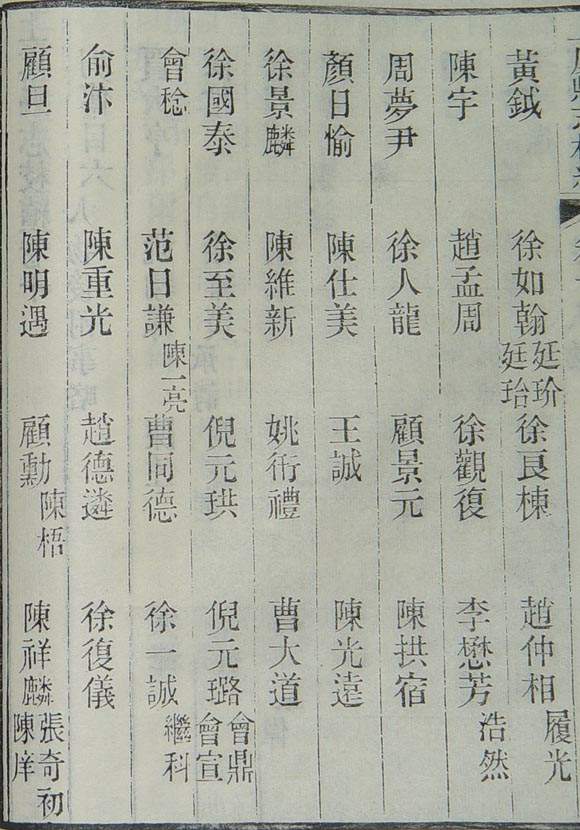 黃鉞 徐如翰 廷玠 廷珆 徐良棟 趙仲相 履光
陳宇 趙孟周 徐觀復 李懋芳 浩然
周夢尹 徐人龍 顧景元 陳拱宿
顏日愉 陳仕美 王誠 陳光遠
徐景麟 陳維新 姚衙禮 曹大道
徐國泰 徐至美 倪元珙 倪元璐 會鼎 會宣
會稔 范日謙 陳一亮 曹同德 徐一誠 繼科
俞汴 陳重光 趙德遴 徐復儀
顧旦 陳明遇 顧勳 陳梧 陳祥麟 張奇初 陳庠